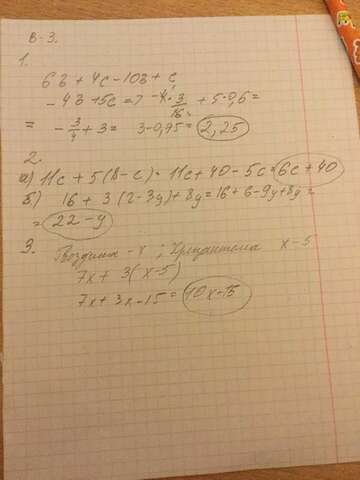 В-3.
1.
6в + 4с - 10в + с
- 4в + 5с => -4·3/16 + 5·0,6 =
= -3/4 + 3 = 3 - 0,75 = 2,25
2.
а) 11с + 5(8 - с) = 11с + 40 - 5с = 6с + 40
б) 16 + 3(2 - 3y) + 8y = 16 + 6 - 9y + 8y =
= 22 - y
3. Гвоздика - x ; Хризантема x - 5
7x + 3(x - 5)
7x + 3x - 15 = 10x - 15